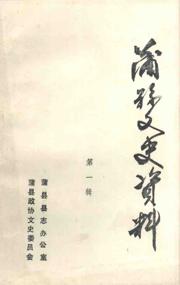 蒲县文史资料
第一辑
蒲县县志办公室
蒲县政协文史委员会